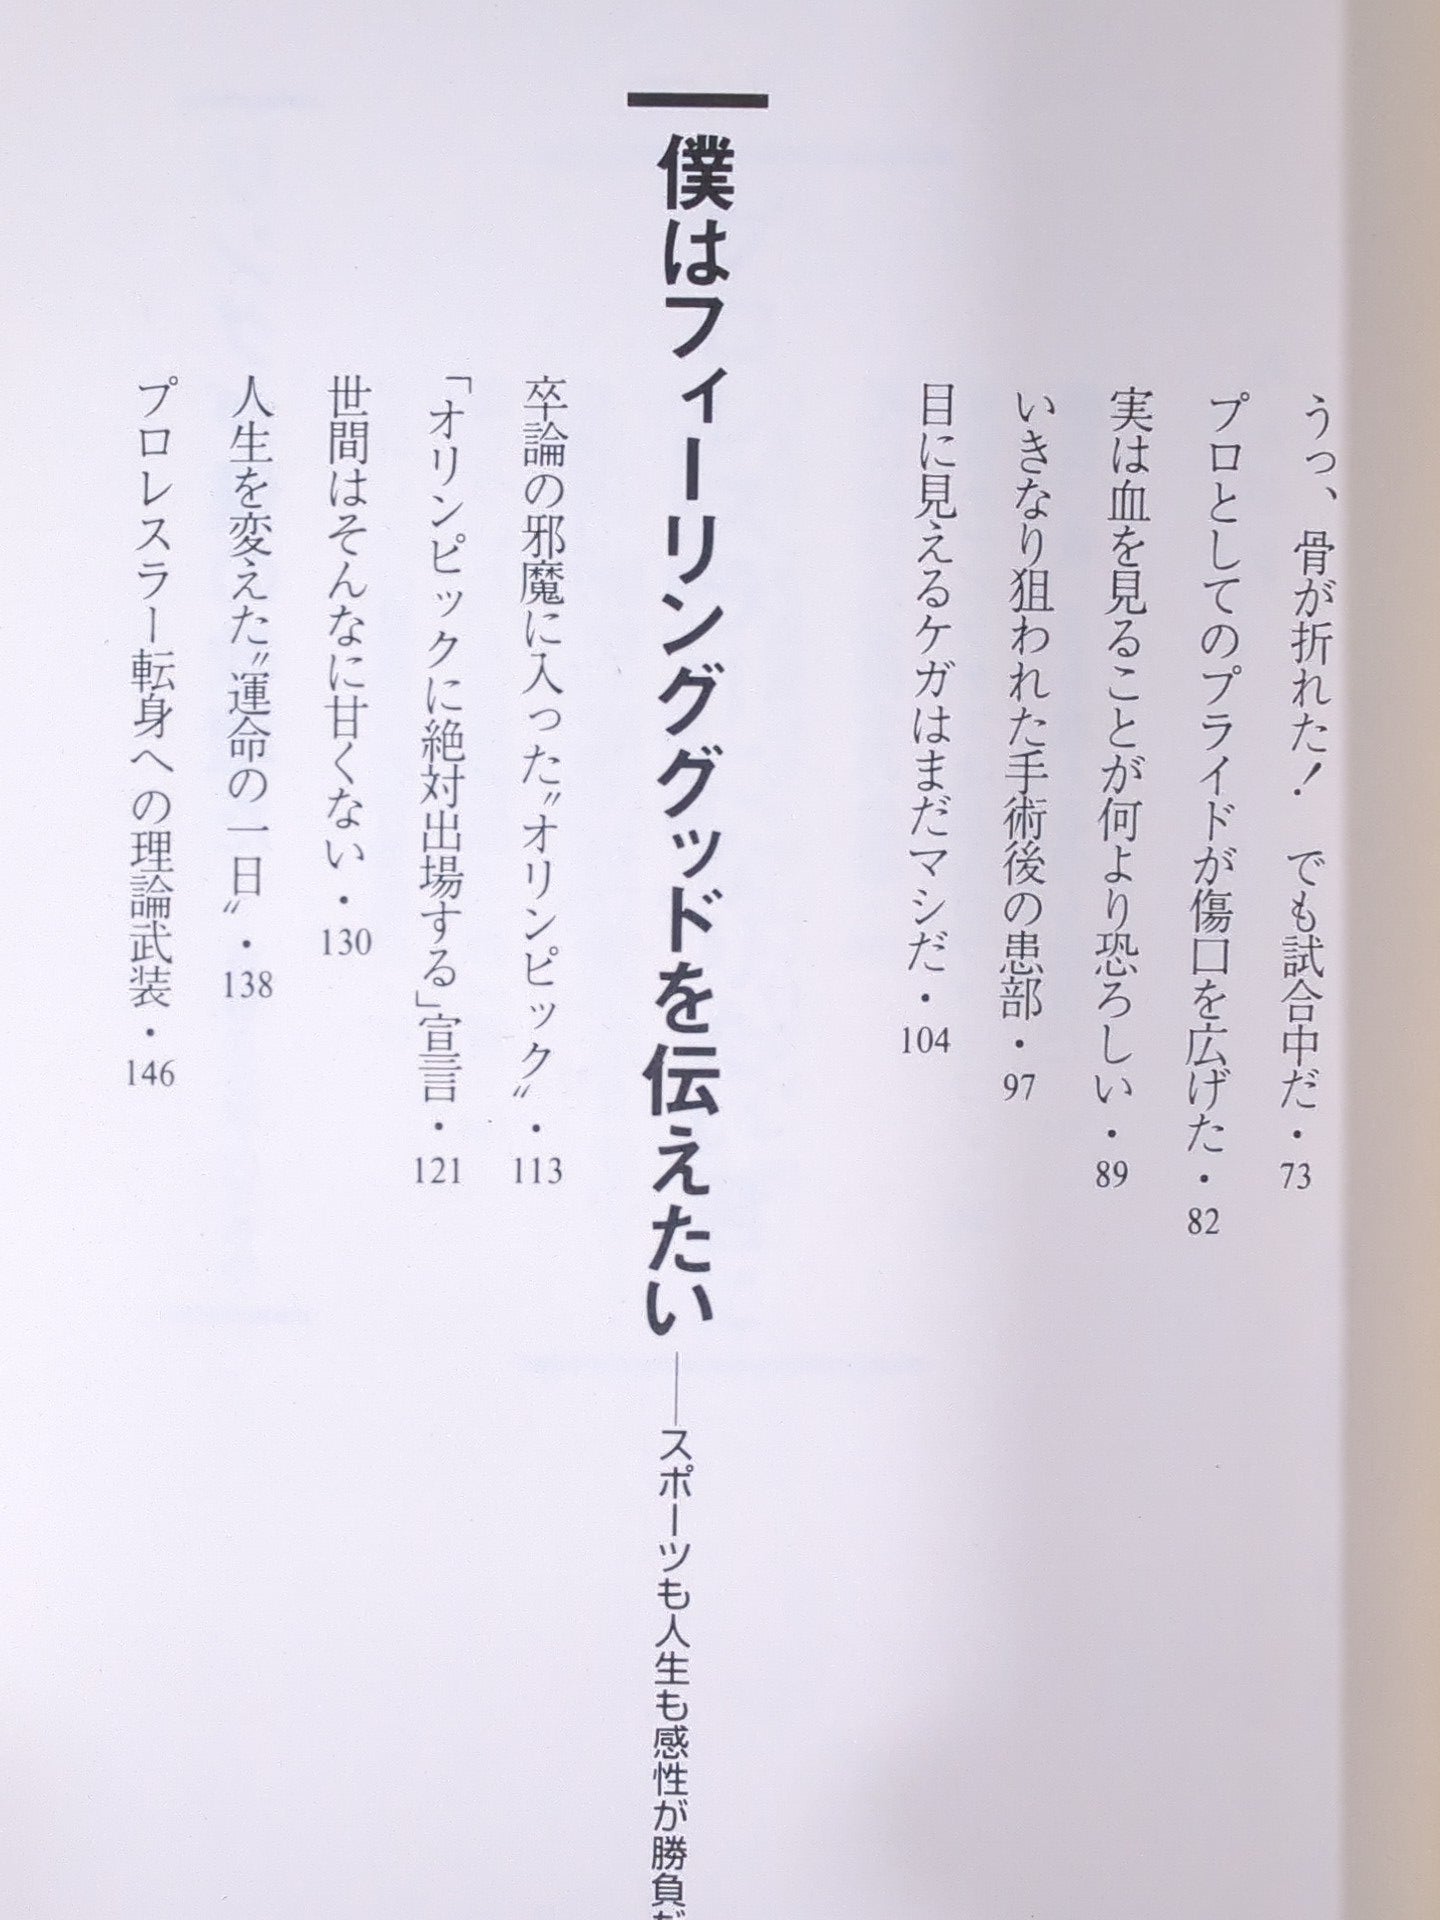 うっ、骨が折れた! でも試合中だ・73
プロとしてのプライドが傷口を広げた・82
実は血を見ることが何より恐ろしい・89
いきなり狙われた手術後の患部・97
目に見えるケガはまだマシだ・104
僕はフィーリンググッドを伝えたい──スポーツも人生も感性が勝負だ
卒論の邪魔に入った〝オリンピック〟・113
「オリンピックに絶対出場する」宣言・121
世間はそんなに甘くない・130
人生を変えた〝運命の一日〟・138
プロレスラー転身への理論武装・146